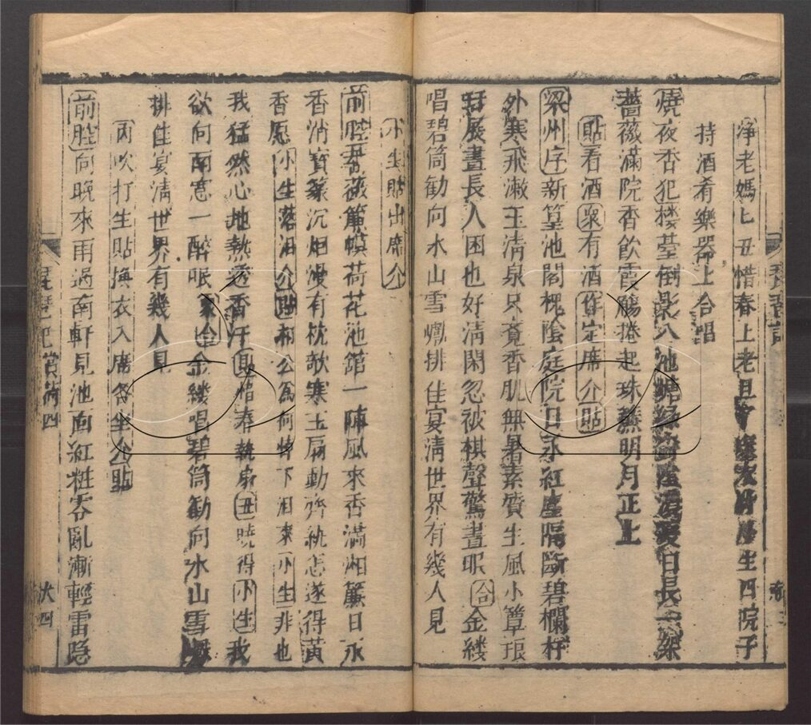 淨老媽丑惜春上老旦
生四院子
持酒肴樂器上合唱
燒夜香犯樓臺倒影入池塘綠樹陰濃夏日長一架
薔薇滿院香飲霞觴捲起珠簾明月正上
貼看酒衆有酒介定席介貼
梁州序新篁池閣槐陰庭院日永紅塵隔斷碧欄杆
外寒飛漱玉清泉只覺香肌無暑素質生風小簟琅
玕展晝長人困也好清閑忽被棋聲驚晝眠合金縷
唱碧筒勸向冰山雪檻排佳宴清世界有幾人見
小生貼出席介
前腔薔薇簾幙荷花池館一陣風來香滿湘簾日永
香消寶篆沉烟謾有枕欹寒玉扇動齊紈怎遂得黃
香愿小生落淚介貼相公爲何掉下淚來小生非也
我猛然心地熱透香汗
執扇丑曉得小生我
欲向南窓一醉眠衆合金縷唱碧筒勸向冰山雪檻
排佳宴清世界有幾人見
丙吹打生貼換衣入席各坐介貼
前腔向晚來雨過南軒見池面紅粧零亂漸輕雷隐